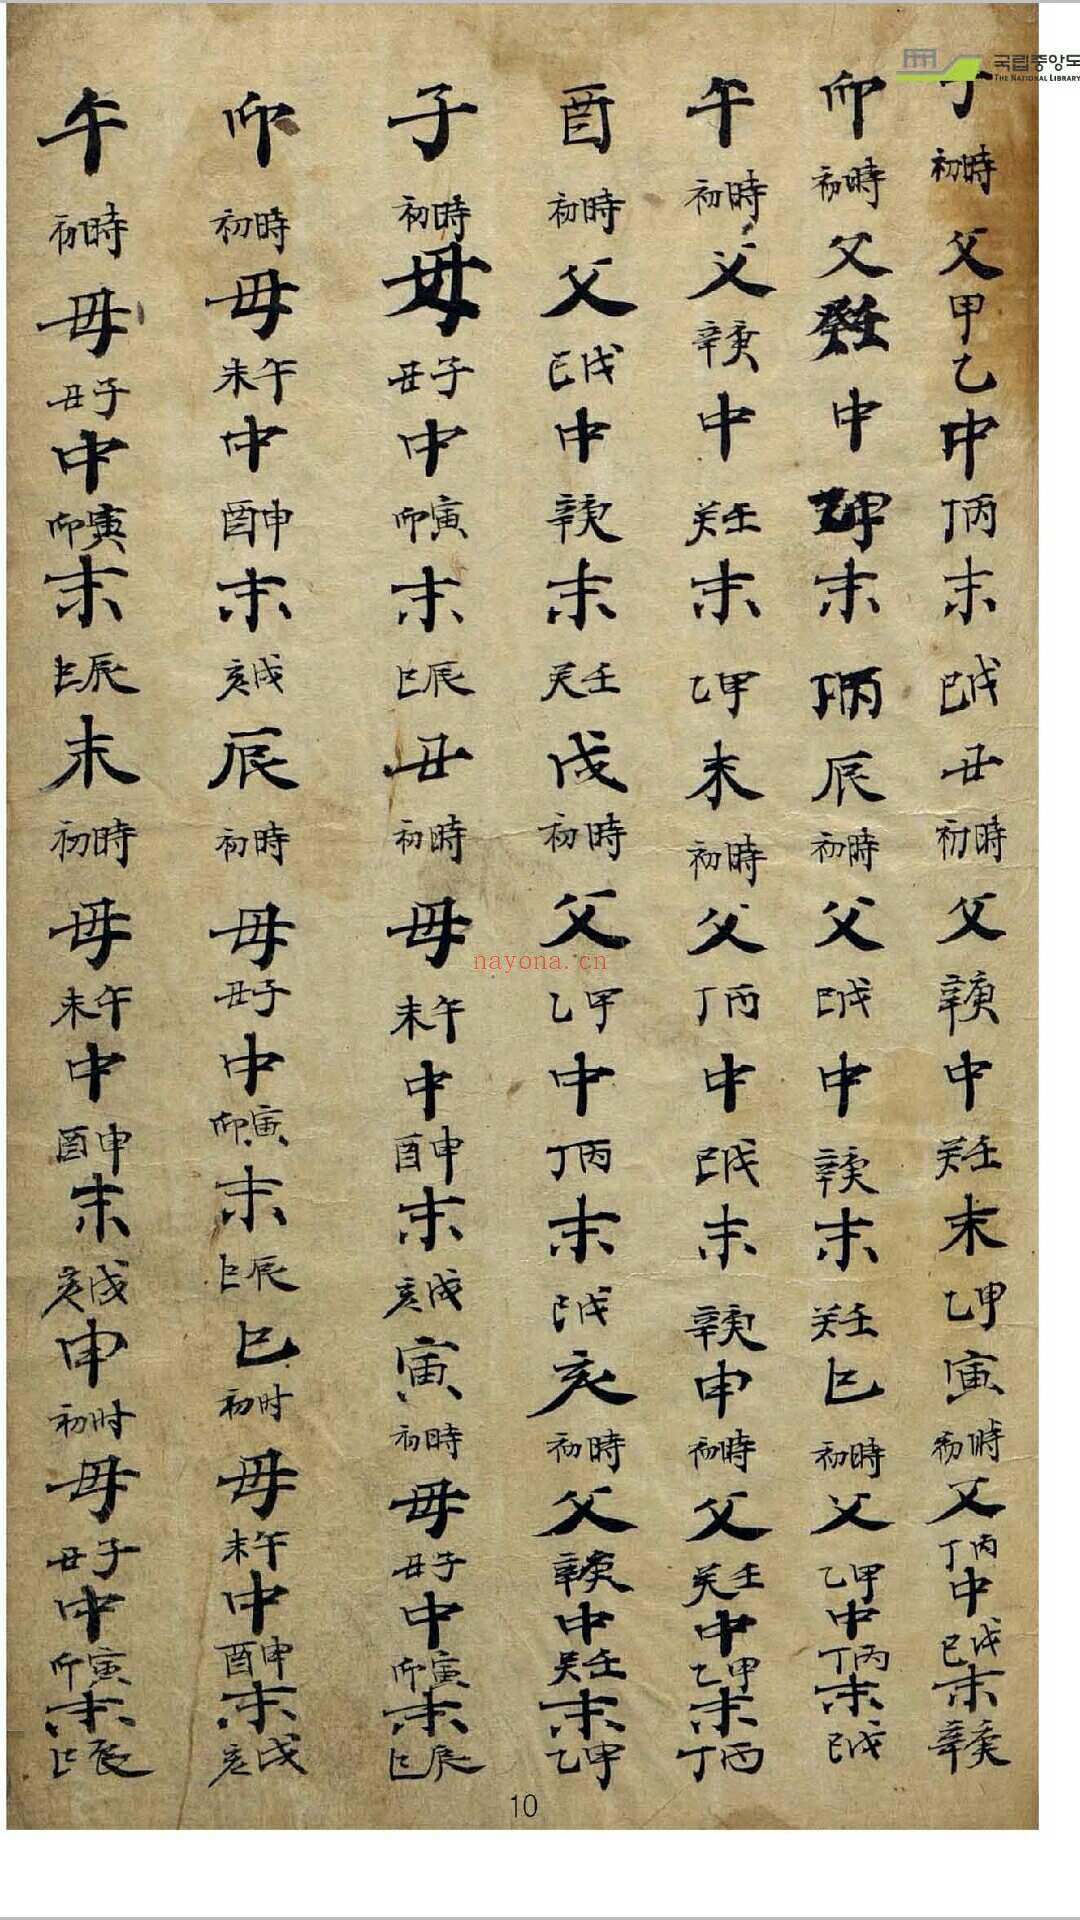 국립중앙도
THE NATIONAL LIBRARY
子時初父甲乙中丙丁末戊己丑時初父庚辛中壬癸末甲乙寅時初父丙丁中戊己末庚辛
卯時初父壬癸中甲乙末丙丁辰時初父戊己中庚辛末壬癸巳時初父甲乙中丙丁末戊己
午時初父庚辛中壬癸末甲乙未時初父丙丁中戊己末庚辛申時初父壬癸中甲乙末丙丁
酉時初父戊己中庚辛末壬癸戌時初父甲乙中丙丁末戊己亥時初父庚辛中壬癸末甲乙
子時初母子丑中寅卯末辰巳丑時初母午未中申酉末戌亥寅時初母子丑中寅卯末辰巳
卯時初母午未中申酉末戌亥辰時初母子丑中寅卯末辰巳巳时初母午未中申酉末戌亥
午時初母子丑中寅卯末辰巳未時初母午未中申酉末戌亥申时初母子丑中寅卯末辰巳
nayona.cn
10